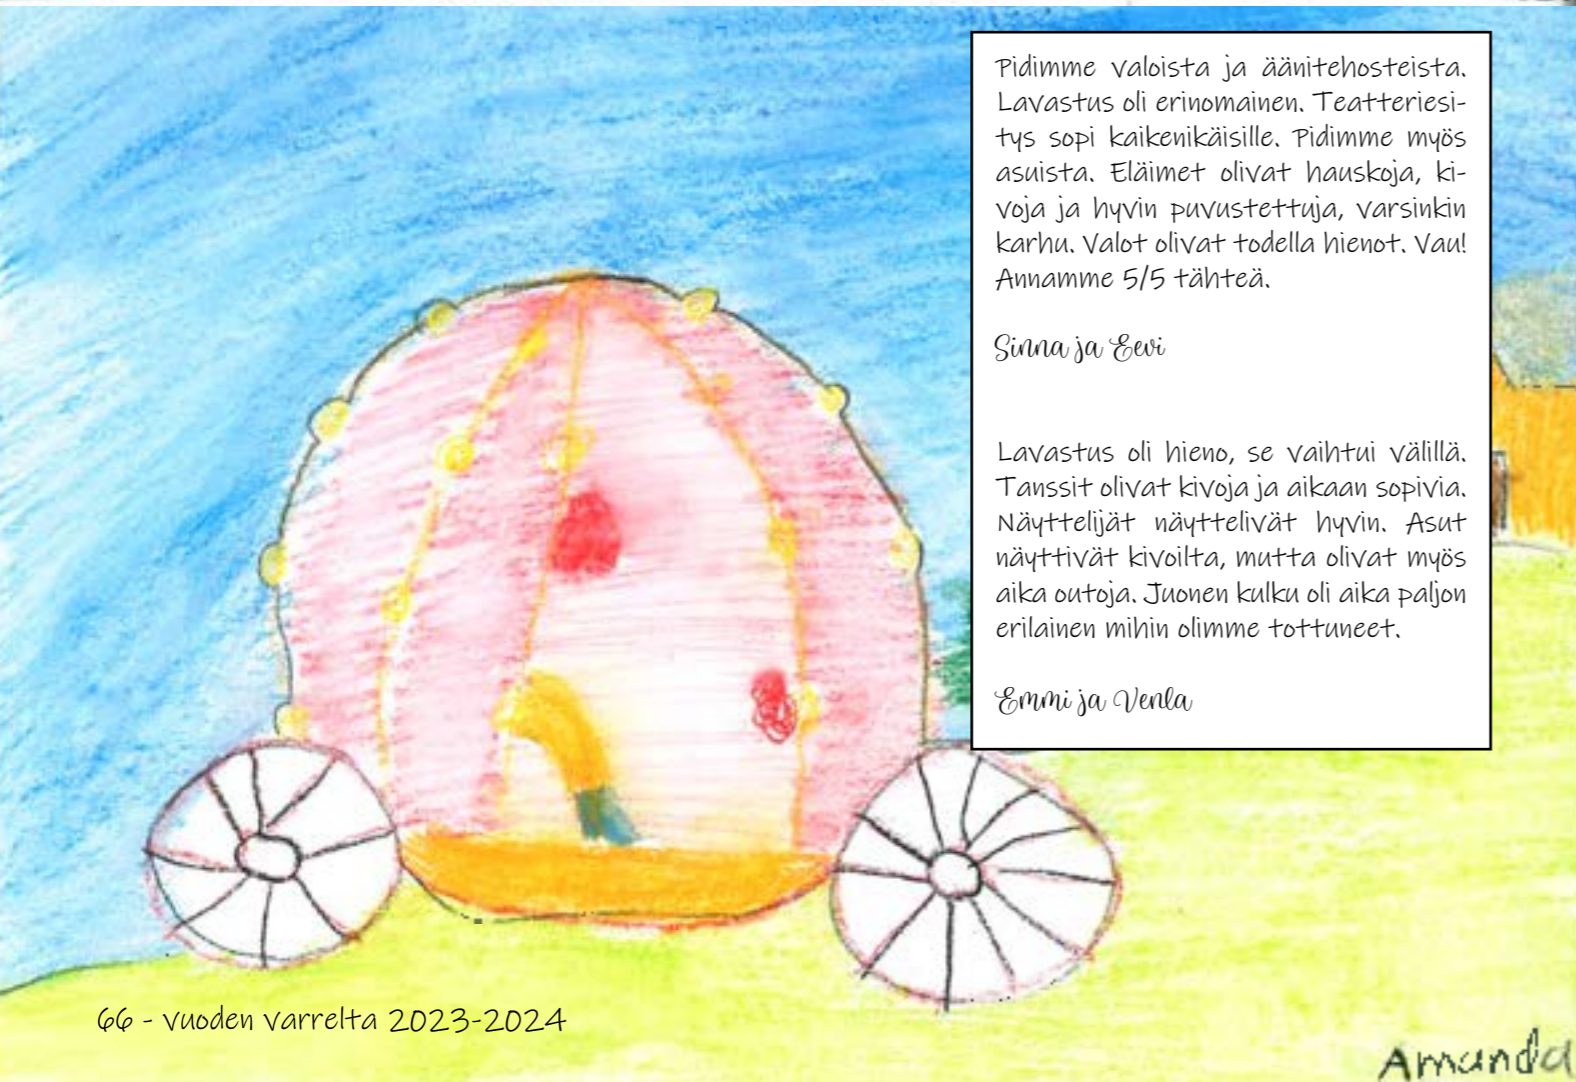 Pidimme valoista ja äänitehosteista.
Lavastus oli erinomainen. Teatteriesi-
tys sopi kaikenikäisille. Pidimme myös
asuista. Eläimet olivat hauskoja, ki-
voja ja hyvin puvustettuja, varsinkin
karhu. Valot olivat todella hienot. Vau!
Annamme 5/5 tähteä.
Sinna ja Eevi
Lavastus oli hieno, se vaihtui välillä.
Tanssit olivat kivoja ja aikaan sopivia.
Näyttelijät näyttelivät hyvin. Asut
näyttivät kivoilta, mutta olivat myös
aika outoja. Juonen kulku oli aika paljon
erilainen mihin olimme tottuneet.
Emmi ja Venla
66 - vuoden varrelta 2023-2024
Amanda